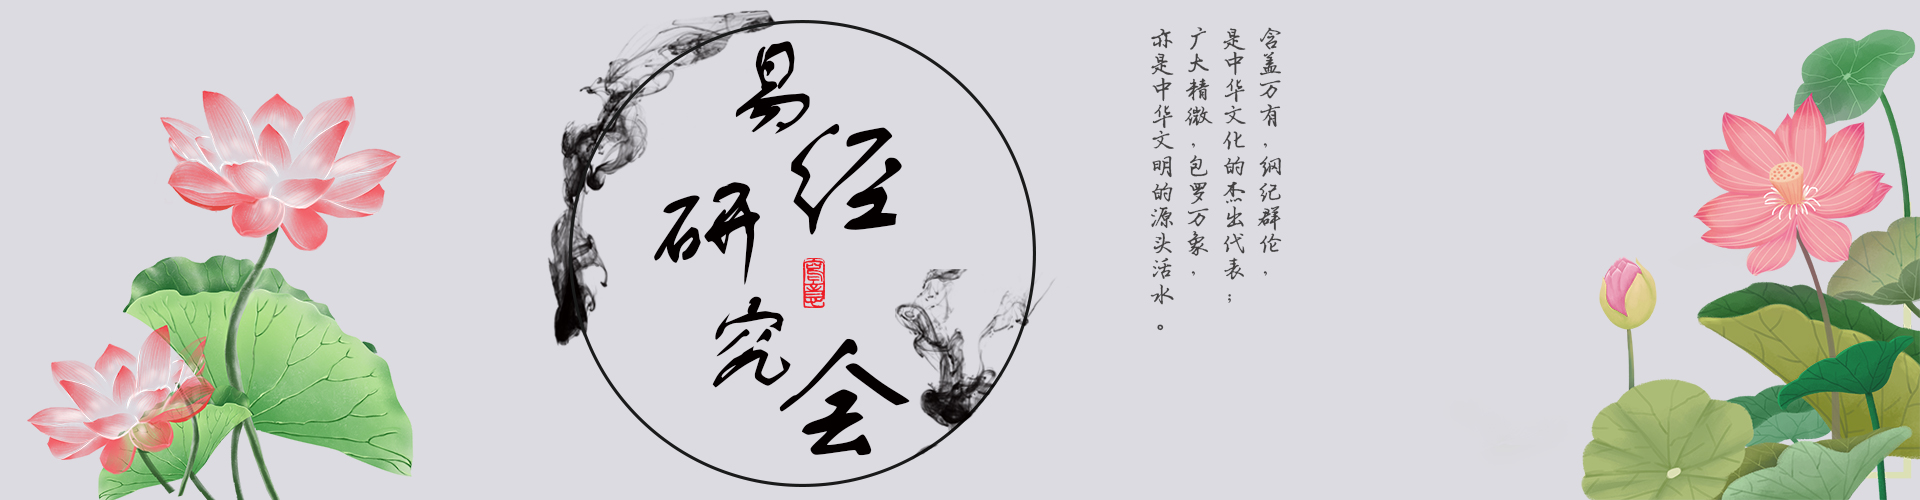 易经
研究会
含盖万有，纲纪群伦，
是中华文化的杰出代表；
广大精微，包罗万象，
亦是中华文明的源头活水。